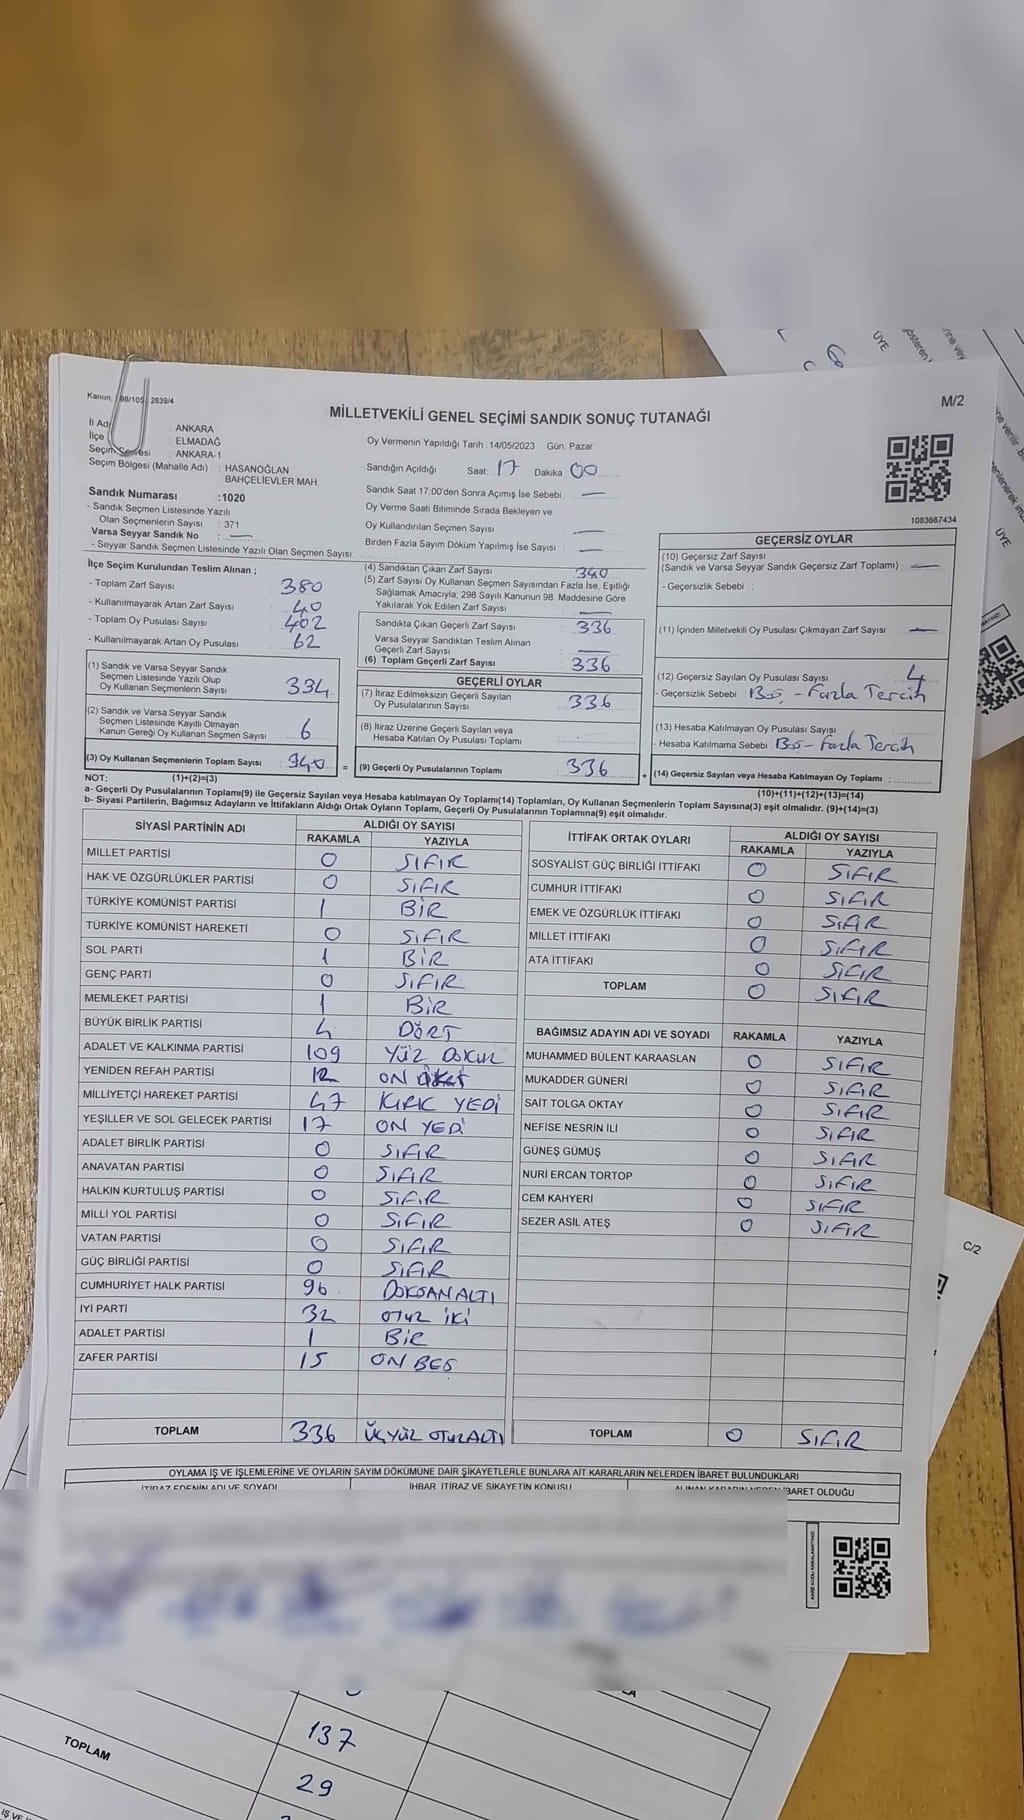 Kanun; 298/105, 2839/4
M/2
MİLLETVEKİLİ GENEL SEÇİMİ SANDIK SONUÇ TUTANAĞI
İl Adı : ANKARA
İlçe : ELMADAĞ
Seçim Çevresi : ANKARA-1
Seçim Bölgesi (Mahalle Adı) : HASANOĞLAN
BAHÇELİEVLER MAH.
Sandık Numarası :1020
- Sandık Seçmen Listesinde Yazılı
Olan Seçmenlerin Sayısı : 371
Varsa Seyyar Sandık No : —
- Seyyar Sandık Seçmen Listesinde Yazılı Olan Seçmen Sayısı:
Oy Vermenin Yapıldığı Tarih : 14/05/2023 Gün: Pazar
Sandığın Açıldığı Saat: 17 Dakika 00
Sandık Saat 17:00'den Sonra Açımış İse Sebebi : —
Oy Verme Saati Bitiminde Sırada Bekleyen ve
Oy Kullandırılan Seçmen Sayısı : —
Birden Fazla Sayım Döküm Yapılmış İse Sayısı : —
1083667434
İlçe Seçim Kurulundan Teslim Alınan ;
- Toplam Zarf Sayısı : 380
- Kullanılmayarak Artan Zarf Sayısı : 40
- Toplam Oy Pusulası Sayısı : 402
- Kullanılmayarak Artan Oy Pusulası : 62
(1) Sandık ve Varsa Seyyar Sandık
Seçmen Listesinde Yazılı Olup
Oy Kullanan Seçmenlerin Sayısı : 334
(2) Sandık ve Varsa Seyyar Sandık
Seçmen Listesinde Kayıtlı Olmayan
Kanun Gereği Oy Kullanan Seçmen Sayısı : 6
(3) Oy Kullanan Seçmenlerin Toplam Sayısı : 340 =
(4) Sandıktan Çıkan Zarf Sayısı : 340
(5) Zarf Sayısı Oy Kullanan Seçmen Sayısından Fazla İse, Eşitliği
Sağlamak Amacıyla; 298 Sayılı Kanunun 98. Maddesine Göre
Yakılarak Yok Edilen Zarf Sayısı : —
Sandıkta Çıkan Geçerli Zarf Sayısı : 336
Varsa Seyyar Sandıktan Teslim Alınan
Geçerli Zarf Sayısı : —
(6) Toplam Geçerli Zarf Sayısı : 336
GEÇERLİ OYLAR
(7) İtiraz Edilmeksizin Geçerli Sayılan
Oy Pusulalarının Sayısı : 336
(8) İtiraz Üzerine Geçerli Sayılan veya
Hesaba Katılan Oy Pusulası Toplamı :
(9) Geçerli Oy Pusulalarının Toplamı : 336 +
GEÇERSİZ OYLAR
(10) Geçersiz Zarf Sayısı
(Sandık ve Varsa Seyyar Sandık Geçersiz Zarf Toplamı) : —
- Geçersizlik Sebebi :
(11) İçinden Milletvekili Oy Pusulası Çıkmayan Zarf Sayısı : —
(12) Geçersiz Sayılan Oy Pusulası Sayısı : 4
- Geçersizlik Sebebi : Boş - Fazla Tercih
(13) Hesaba Katılmayan Oy Pusulası Sayısı :
- Hesaba Katılmama Sebebi : Boş - Fazla Tercih
(14) Geçersiz Sayılan veya Hesaba Katılmayan Oy Toplamı :
NOT: (1)+(2)=(3) (10)+(11)+(12)+(13)=(14)
a- Geçerli Oy Pusulaları Toplamı(9) ile Geçersiz Sayılan veya Hesaba katılmayan Oy Toplamı(14) Toplamları, Oy Kullanan Seçmenlerin Toplam Sayısına(3) eşit olmalıdır. (9)+(14)=(3)
b- Siyasi Partilerin, Bağımsız Adayların ve İttifakların Aldığı Ortak Oyların Toplamı, Geçerli Oy Pusulalarının Toplamına(9) eşit olmalıdır.
SİYASİ PARTİNİN ADI ALDIĞI OY SAYISI
RAKAMLA YAZIYLA
MİLLET PARTİSİ 0 SIFIR
HAK VE ÖZGÜRLÜKLER PARTİSİ 0 SIFIR
TÜRKİYE KOMÜNİST PARTİSİ 1 BİR
TÜRKİYE KOMÜNİST HAREKETİ 0 SIFIR
SOL PARTİ 1 BİR
GENÇ PARTİ 0 SIFIR
MEMLEKET PARTİSİ 1 BİR
BÜYÜK BİRLİK PARTİSİ 4 DÖRT
ADALET VE KALKINMA PARTİSİ 109 YÜZ DOKUZ
YENİDEN REFAH PARTİSİ 12 ON
MİLLİYETÇİ HAREKET PARTİSİ 47 KIRK YEDİ
YEŞİLLER VE SOL GELECEK PARTİSİ 17 ON YEDİ
ADALET BİRLİK PARTİSİ 0 SIFIR
ANAVATAN PARTİSİ 0 SIFIR
HALKIN KURTULUŞ PARTİSİ 0 SIFIR
MİLLİ YOL PARTİSİ 0 SIFIR
VATAN PARTİSİ 0 SIFIR
GÜÇ BİRLİĞİ PARTİSİ 0 SIFIR
CUMHURİYET HALK PARTİSİ 96 DOKSAN ALTI
İYİ PARTİ 32 OTUZ İKİ
ADALET PARTİSİ 1 BİR
ZAFER PARTİSİ 15 ON BEŞ
TOPLAM 336 ÜÇYÜZ OTUZALTI
İTTİFAK ORTAK OYLARI ALDIĞI OY SAYISI
RAKAMLA YAZIYLA
SOSYALİST GÜÇ BİRLİĞİ İTTİFAKI 0 SIFIR
CUMHUR İTTİFAKI 0 SIFIR
EMEK VE ÖZGÜRLÜK İTTİFAKI 0 SIFIR
MİLLET İTTİFAKI 0 SIFIR
ATA İTTİFAKI 0 SIFIR
TOPLAM 0 SIFIR
BAĞIMSIZ ADAYIN ADI VE SOYADI RAKAMLA YAZIYLA
MUHAMMED BÜLENT KARAASLAN 0 SIFIR
MUKADDER GÜNERİ 0 SIFIR
SAİT TOLGA OKTAY 0 SIFIR
NEFİSE NESRİN İLİ 0 SIFIR
GÜNEŞ GÜMÜŞ 0 SIFIR
NURİ ERCAN TORTOP 0 SIFIR
CEM KAHYERİ 0 SIFIR
SEZER ASIL ATEŞ 0 SIFIR
TOPLAM 0 SIFIR
OYLAMA İŞ VE İŞLEMLERİNE VE OYLARIN SAYIM DÖKÜMÜNE DAİR ŞİKAYETLERLE BUNLARA AİT KARARLARIN NELERDEN İBARET BULUNDUKLARI
İTİRAZ EDENİN ADI VE SOYADI İHBAR, İTİRAZ VE ŞİKAYETİN KONUSU ALINAN KARARIN NEDEN İBARET OLDUĞU
C/2
ÜYE
ÜYE
137
TOPLAM
29